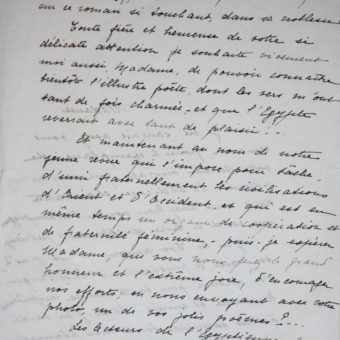 ce roman si touchant, dans sa noblesse
Toute fière et heureuse de votre si
délicate attention je souhaite vivement
moi aussi, Madame, de pouvoir connaître
bientôt l'illustre poète, dont les vers m'ont
tant de fois charmée, et que l'Egypte
reverrait avec tant de plaisir..
Et maintenant au nom de notre
jeune revue qui s'impose pour tâche
d'unir fraternellement les civilisations
d'Orient et d'Occident, et qui est en
même temps un organe de coopération et
de fraternité féminine, - puis-je espérer
Madame, que vous nous ferez le grand
honneur et l'extrême joie, d'encourager
nos efforts, en nous envoyant avec votre
photo, un de vos jolis poèmes?...
Les lecteurs de l'Egyptienne